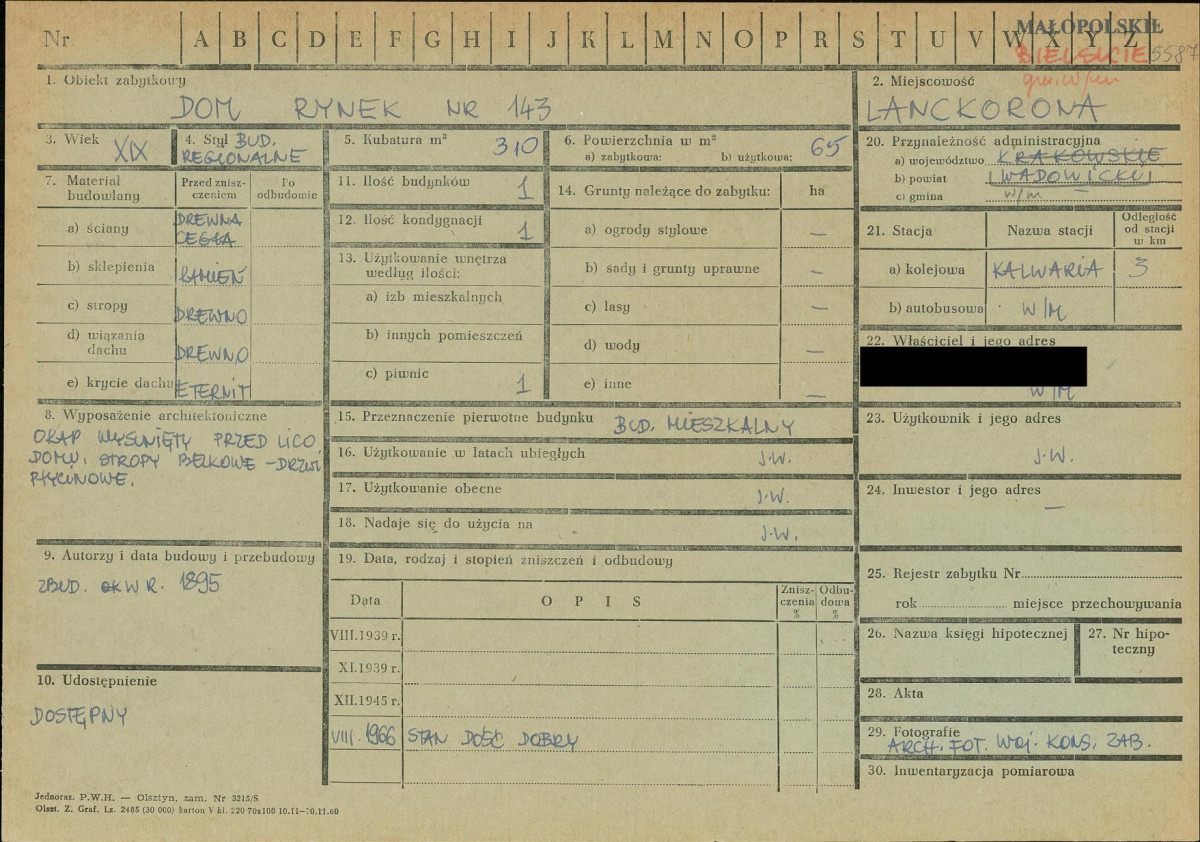 Nr A B C D E F G H I J K L M N O P R S T U V W X Y Z
MAŁOPOLSKIE
BIELSKIE 5587
gm. w/m
1. Obiekt zabytkowy
DOM RYNEK NR 143
2. Miejscowość
LANCKORONA
3. Wiek XIX
4. Styl BUD.
REGIONALNE
5. Kubatura m³ 310
6. Powierzchnia w m²
a) zabytkowa: b) użytkowa: 65
7. Materiał budowlany
Przed zniszczeniem
Po odbudowie
a) ściany DREWNA
CEGŁA
b) sklepienia KAMIEŃ
c) stropy DREWNO
d) wiązania dachu DREWNO
e) krycie dachu ETERNIT
8. Wyposażenie architektoniczne
OKAP WYSUNIĘTY PRZED LICO
DOMU. STROPY BELKOWE – DRZWI
PŁYCINOWE.
9. Autorzy i data budowy i przebudowy
ZBUD. OK W R. 1895
10. Udostępnienie
DOSTĘPNY
11. Ilość budynków 1
12. Ilość kondygnacji 1
13. Użytkowanie wnętrza
według ilości:
a) izb mieszkalnych
b) innych pomieszczeń
c) piwnic 1
14. Grunty należące do zabytku: ha
a) ogrody stylowe –
b) sady i grunty uprawne –
c) lasy –
d) wody –
e) inne –
15. Przeznaczenie pierwotne budynku BUD. MIESZKALNY
16. Użytkowanie w latach ubiegłych J.W.
17. Użytkowanie obecne J.W.
18. Nadaje się do użycia na J.W.
19. Data, rodzaj i stopień zniszczeń i odbudowy
Data O P I S Zniszczenia % Odbudowa %
VIII.1939 r.
XI.1939 r.
XII.1945 r.
VIII. 1966 STAN DOŚĆ DOBRY
20. Przynależność administracyjna
a) województwo KRAKOWSKIE
b) powiat WADOWICKI
c) gmina w/m –
21. Stacja Nazwa stacji Odległość od stacji w km
a) kolejowa KALWARIA 3
b) autobusowa W/M
22. Właściciel i jego adres
W/M
23. Użytkownik i jego adres
J.W.
24. Inwestor i jego adres
–
25. Rejestr zabytku Nr
rok miejsce przechowywania
26. Nazwa księgi hipotecznej
27. Nr hipoteczny
28. Akta
29. Fotografie
ARCH. FOT. WOJ. KONS. ZAB.
30. Inwentaryzacja pomiarowa
Jednoraz. P.W.H. — Olsztyn, zam. Nr 3215/S
Olszt. Z. Graf. Lz. 2485 (30 000) karton V kl. 220 70x100 10.11–30.11.60